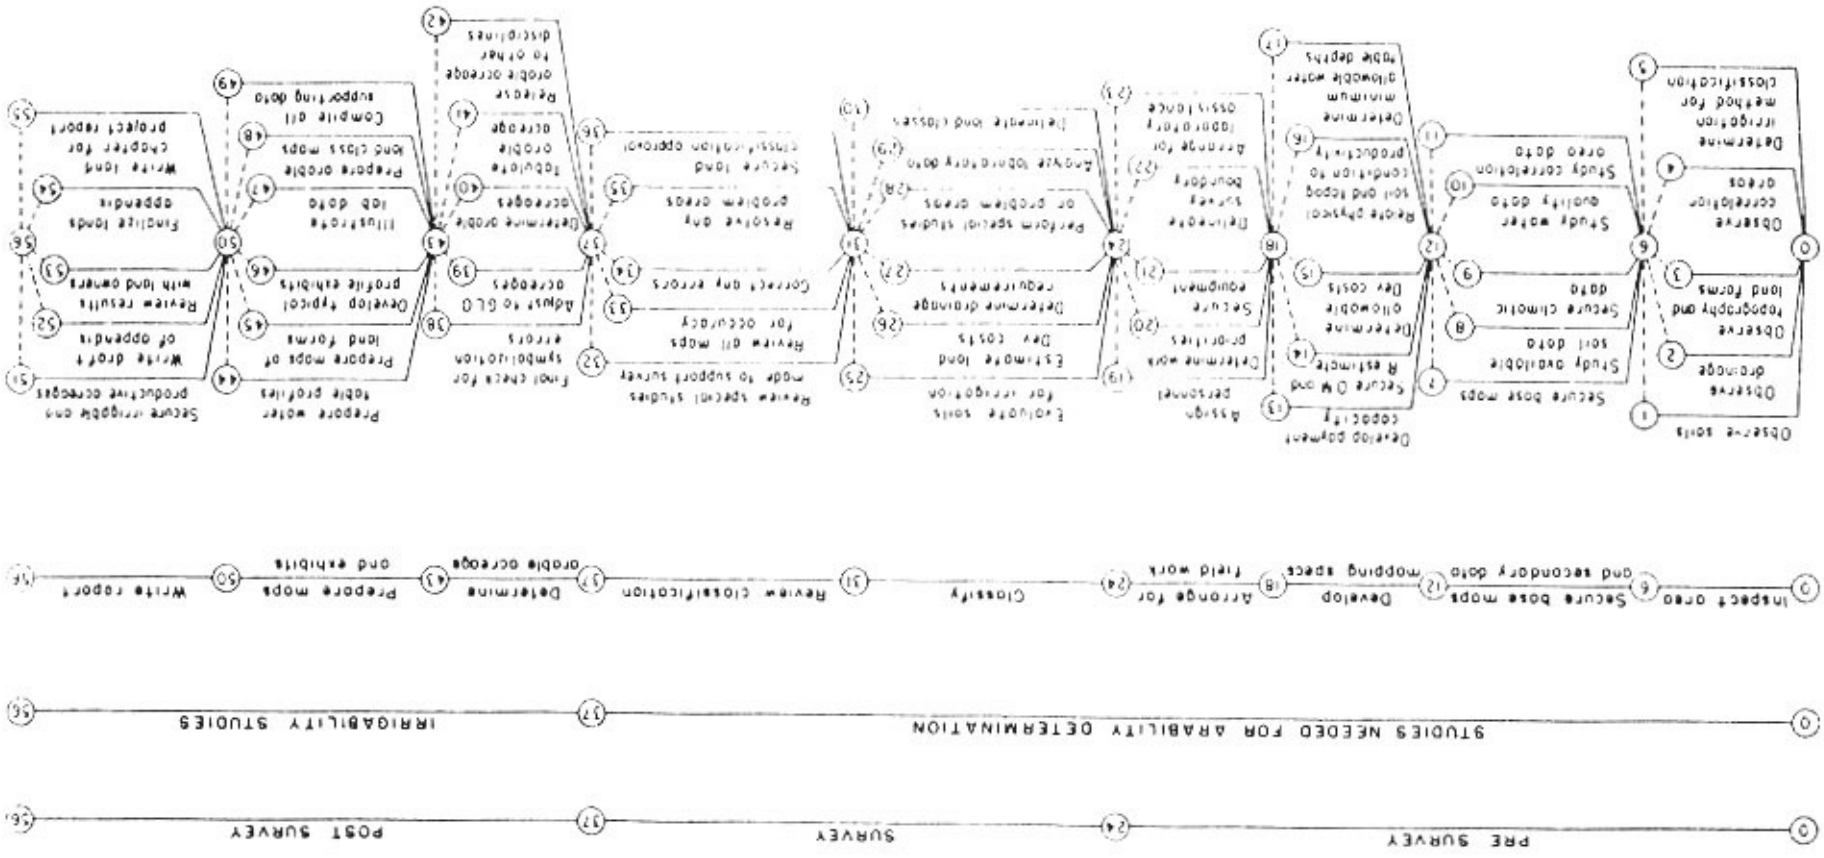 0 PRE SURVEY 24 SURVEY 37 POST SURVEY 56
0 STUDIES NEEDED FOR ARABILITY DETERMINATION 37 IRRIGABILITY STUDIES 56
0 Inspect area 6
Secure base maps
and secondary data
12
Develop
mapping specs
18
Arrange for
field work
24
Classify
31
Review classification
37
Determine
arable acreage
43
Prepare maps
and exhibits
50
Write report
56
0
Observe soils
1
Observe
drainage
2
Observe
topography and
land forms
3
Observe
correlation
areas
4
Determine
irrigation
method for
classification
5
6
Secure base maps
7
Study available
soil data
8
Secure climatic
data
9
Study water
quality data
10
Study correlation
area data
11
12
Develop payment
capacity
13
Secure O M and
R estimate
14
Determine
allowable
Dev costs
15
Relate physical
soil and topog
condition to
productivity
16
Determine
minimum
allowable water
table depths
17
18
Assign
personnel
19
Determine work
priorities
20
Secure
equipment
21
Delineate
survey
boundary
22
Arrange for
laboratory
assistance
23
24
Evaluate soils
for irrigation
25
Estimate land
Dev costs
26
Determine drainage
requirements
27
Perform special studies
on problem areas
28
Analyze laboratory data
29
Delineate land classes
30
31
Review special studies
made to support survey
32
Review all maps
for accuracy
33
Correct any errors
34
Resolve any
problem areas
35
Secure land
classification approval
36
37
Final check for
symbolization
errors
38
Adjust to GLO
acreages
39
Determine arable
acreages
40
Tabulate
arable
acreage
41
Release
arable acreage
to other
disciplines
42
43
Prepare water
table profiles
44
Prepare maps of
land forms
45
Develop typical
profile exhibits
46
Illustrate
lab data
47
Prepare arable
land class maps
48
Compile all
supporting data
49
50
Secure irrigable and
productive acreages
51
Write draft
of appendix
52
Review results
with land owners
53
Finalize lands
appendix
54
Write land
chapter for
project report
55
56